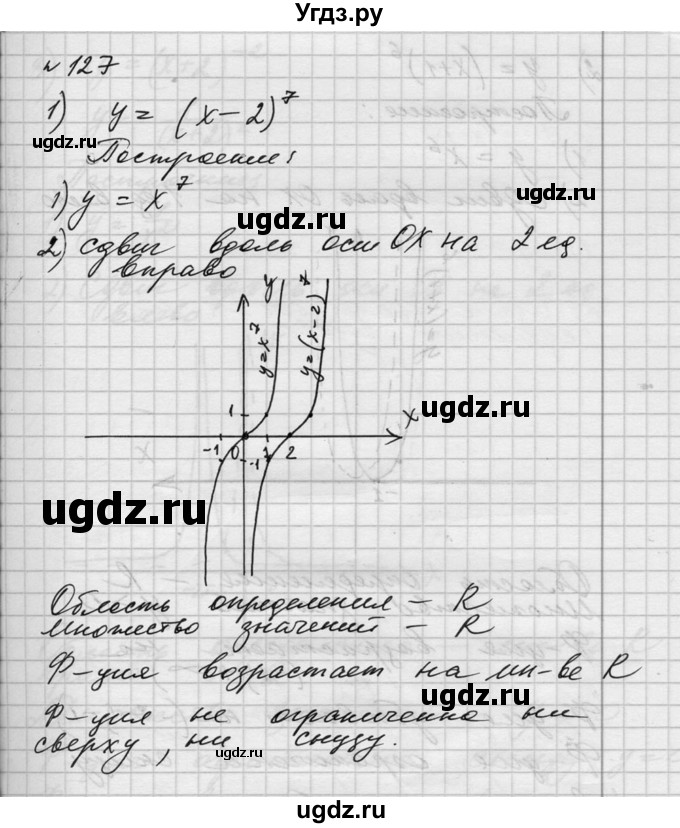 Угдз.ру
№127
1) y = (x-2)^7
Построение:
1) y = x^7
2) сдвиг вдоль оси OX на 2 ед.
вправо
y
y=x^7
y=(x-2)^7
1
X
-1 0 1 2
-1
Область определения – R
множество значений – R
Ф-ция возрастает на мн-ве R
Ф-ция не ограниченна ни
сверху, ни снизу.
ugdz.ru
ugdz.ru
ugdz.ru
ugdz.ru
ugdz.ru
ugdz.ru
ugdz.ru
ugdz.ru
ugdz.ru